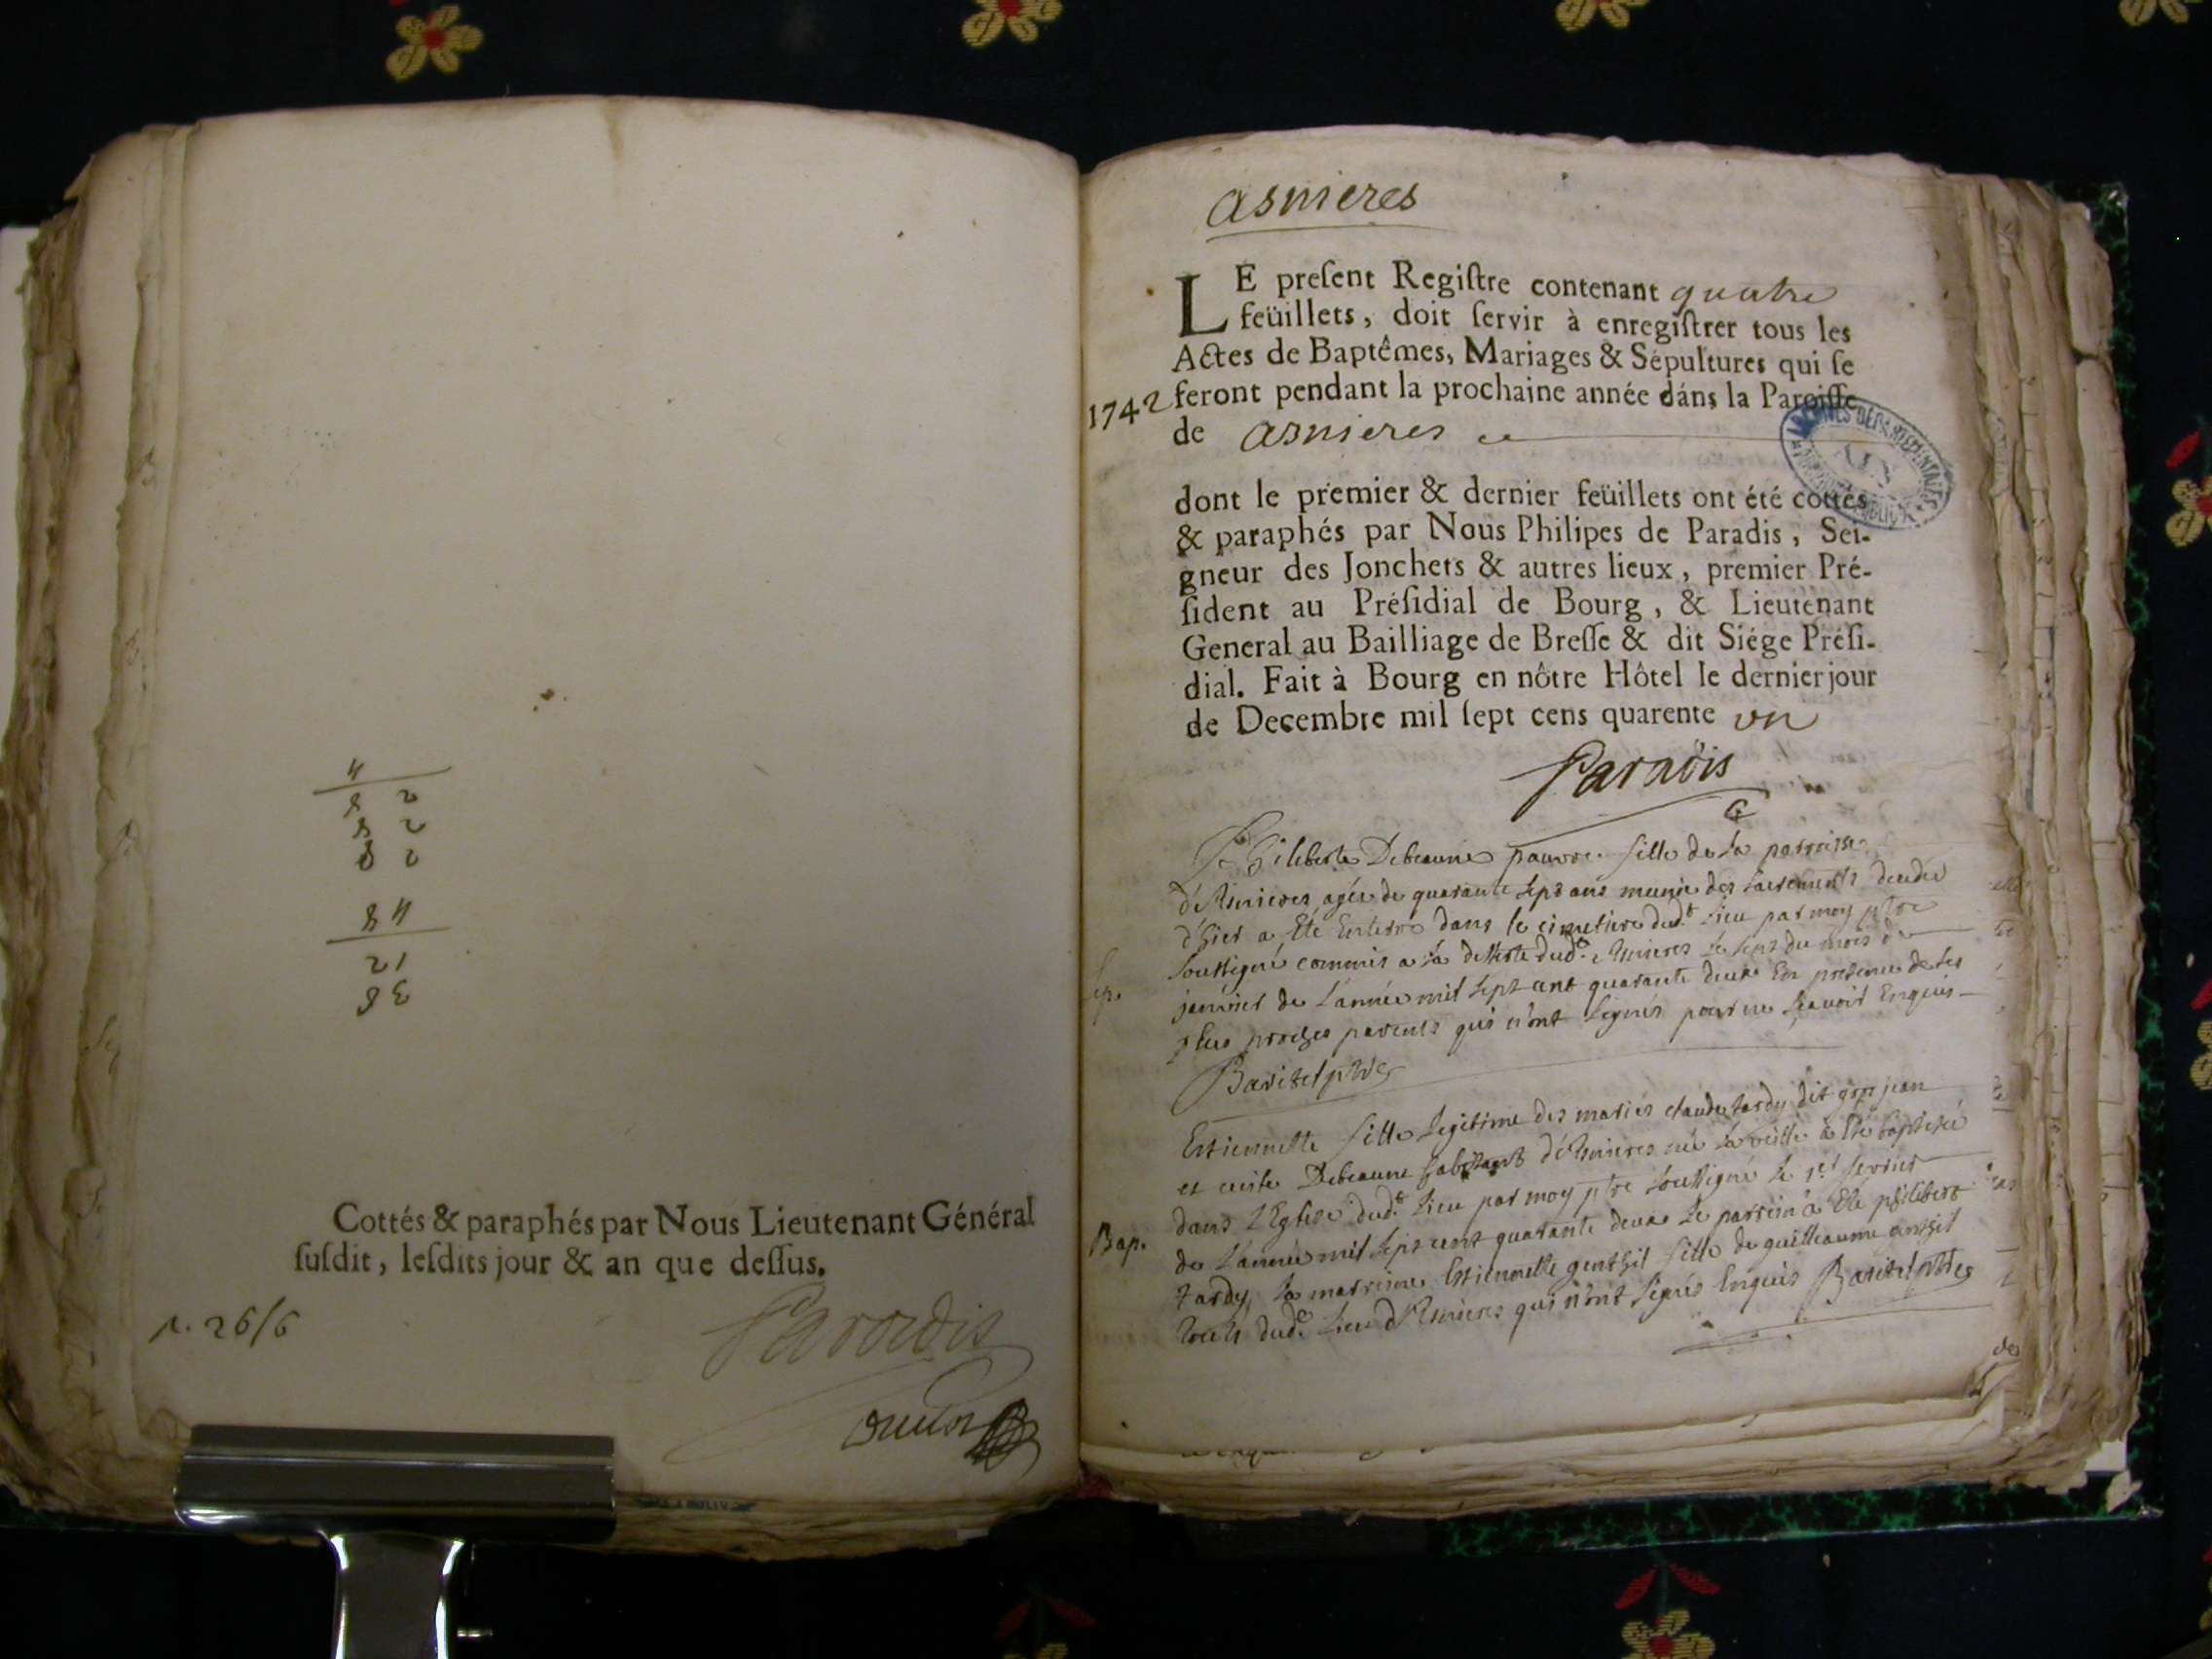 Cottés & paraphés par Nous Lieutenant Général
ſuſdit, leſdits jour & an que deſſus.
Paradis
asnieres
LE preſent Regiſtre contenant quatre
feüillets, doit ſervir à enregiſtrer tous les
Actes de Baptêmes, Mariages & Sépultures qui ſe
1742 feront pendant la prochaine année dáns la Paroiſſe
de asnieres
dont le premier & dernier feüillets ont été cottés
& paraphés par Nous Philipes de Paradis, Sei-
gneur des Jonchets & autres lieux, premier Pré-
ſident au Préſidial de Bourg, & Lieutenant
General au Bailliage de Breſſe & dit Siége Préſi-
dial. Fait à Bourg en nôtre Hôtel le dernier jour
de Decembre mil ſept cens quarente un
Paradis
Philiberte Debeaune pauvre fille de la parroisse
d'Asnieres agée de quarante sept ans munie des sacrements decedée
d'hier a Eté Enterré dans le cimetiere dud.t lieu par moy ptre
Sep. soussigné commis a la desserte dud.t Asnieres le sept du mois de
janvier de l'année mil sept cent quarante deux En presence de ses
plus proches parents qui n'ont signés pour ne sçavoir Enquis
Baritel ptre
Estiennette fille legitime des mariés claude tardy dit gros jean
et Debeaune habitant d'Asnieres née la veille a Eté baptisée
dans l'Eglise dud.t lieu par moy ptre soussigné le 1.er fevrier
Bap. de l'année mil sept cent quarante deux le parrein a Eté philibert
tardy, la marreine Estiennette genthil fille de guilleaume
touts dud.t lieu d'Asnieres qui n'ont signés Enquis Baritel ptre